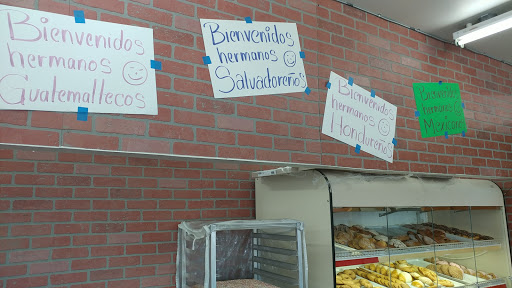 Bienvenidos
hermanos
Guatemaltecos
Bienvenidos
hermanos
Salvadoreños
Bienvenidos
hermanos
Hondureños
Bienvenidos
hermanos